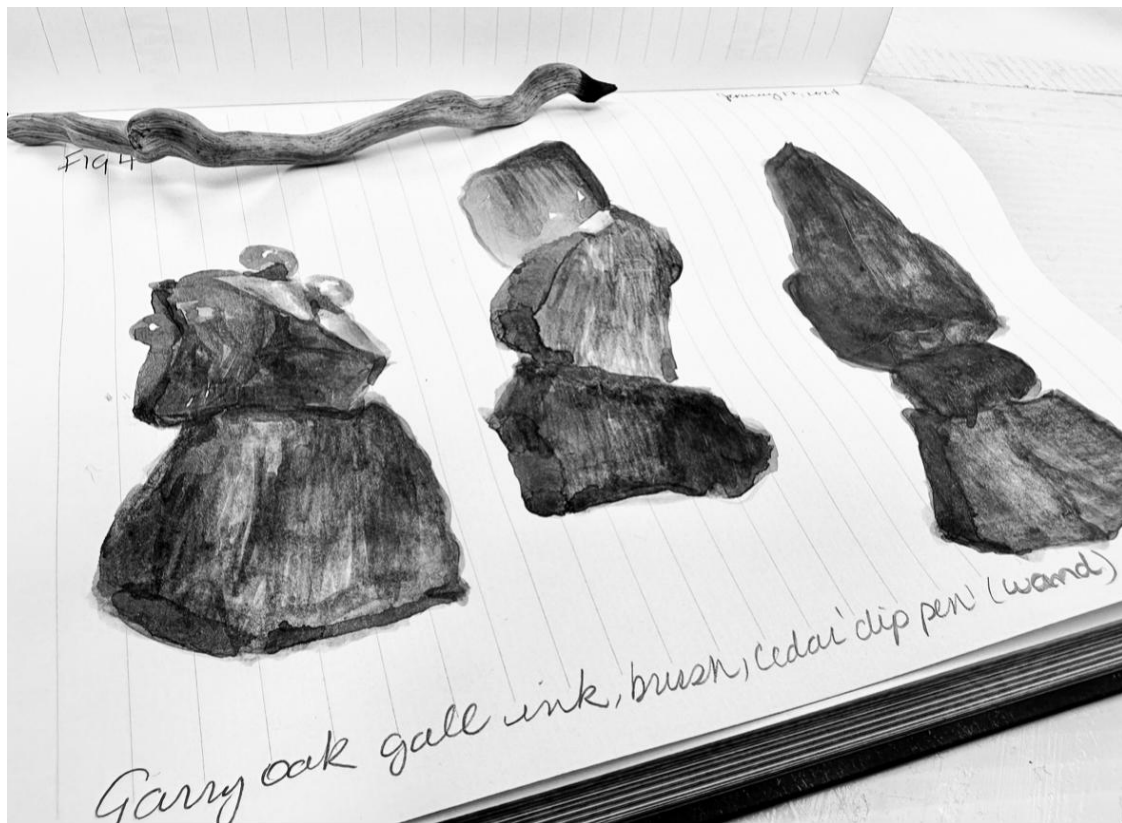 Fig 4
Garry oak gall ink, brush, cedar 'dip pen' (wand)